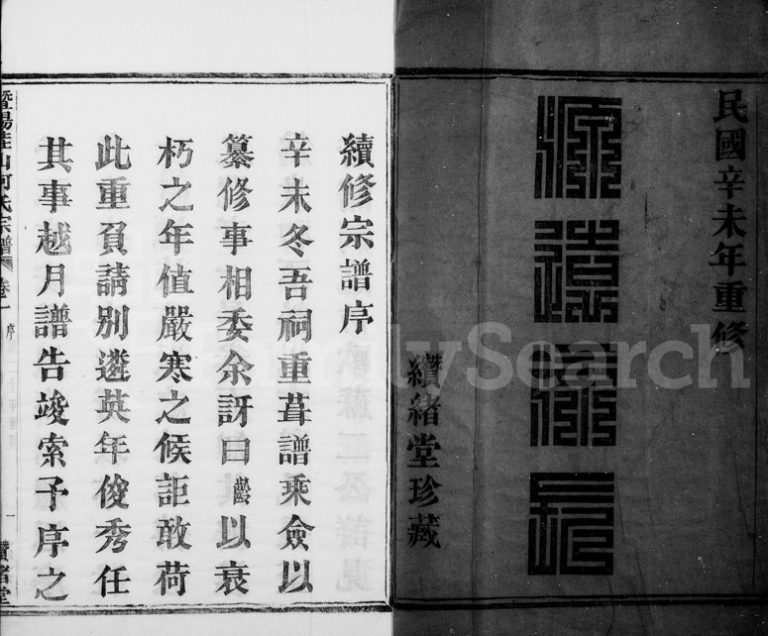 民國辛未年重修
源遠流長
纘緒堂珍藏
續修宗譜序
辛未冬吾祠重葺譜乘僉以
纂修事相委余訝曰以衰
朽之年值嚴寒之候詎敢荷
此重負請別遴英年俊秀任
其事越月譜告竣索予序之
暨陽桂山何氏宗譜 卷一 序 一 纘緒堂
FamilySearch